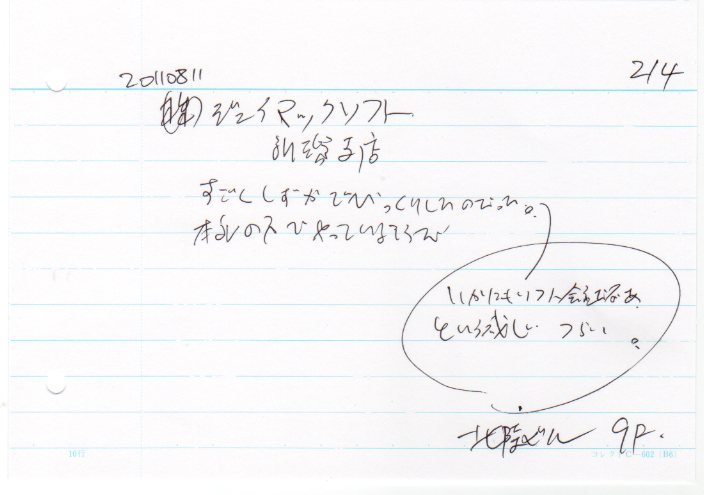 20110811
214
(株)ジェイマックソフト
釧路支店
すごくしずかでびっくりしたのだった。
本社の下でやっているそうで
いかにもソフト会社だなあ
という感じ つらい。
北陸ビル 9F.
10行
コレクト C-602 (B6)